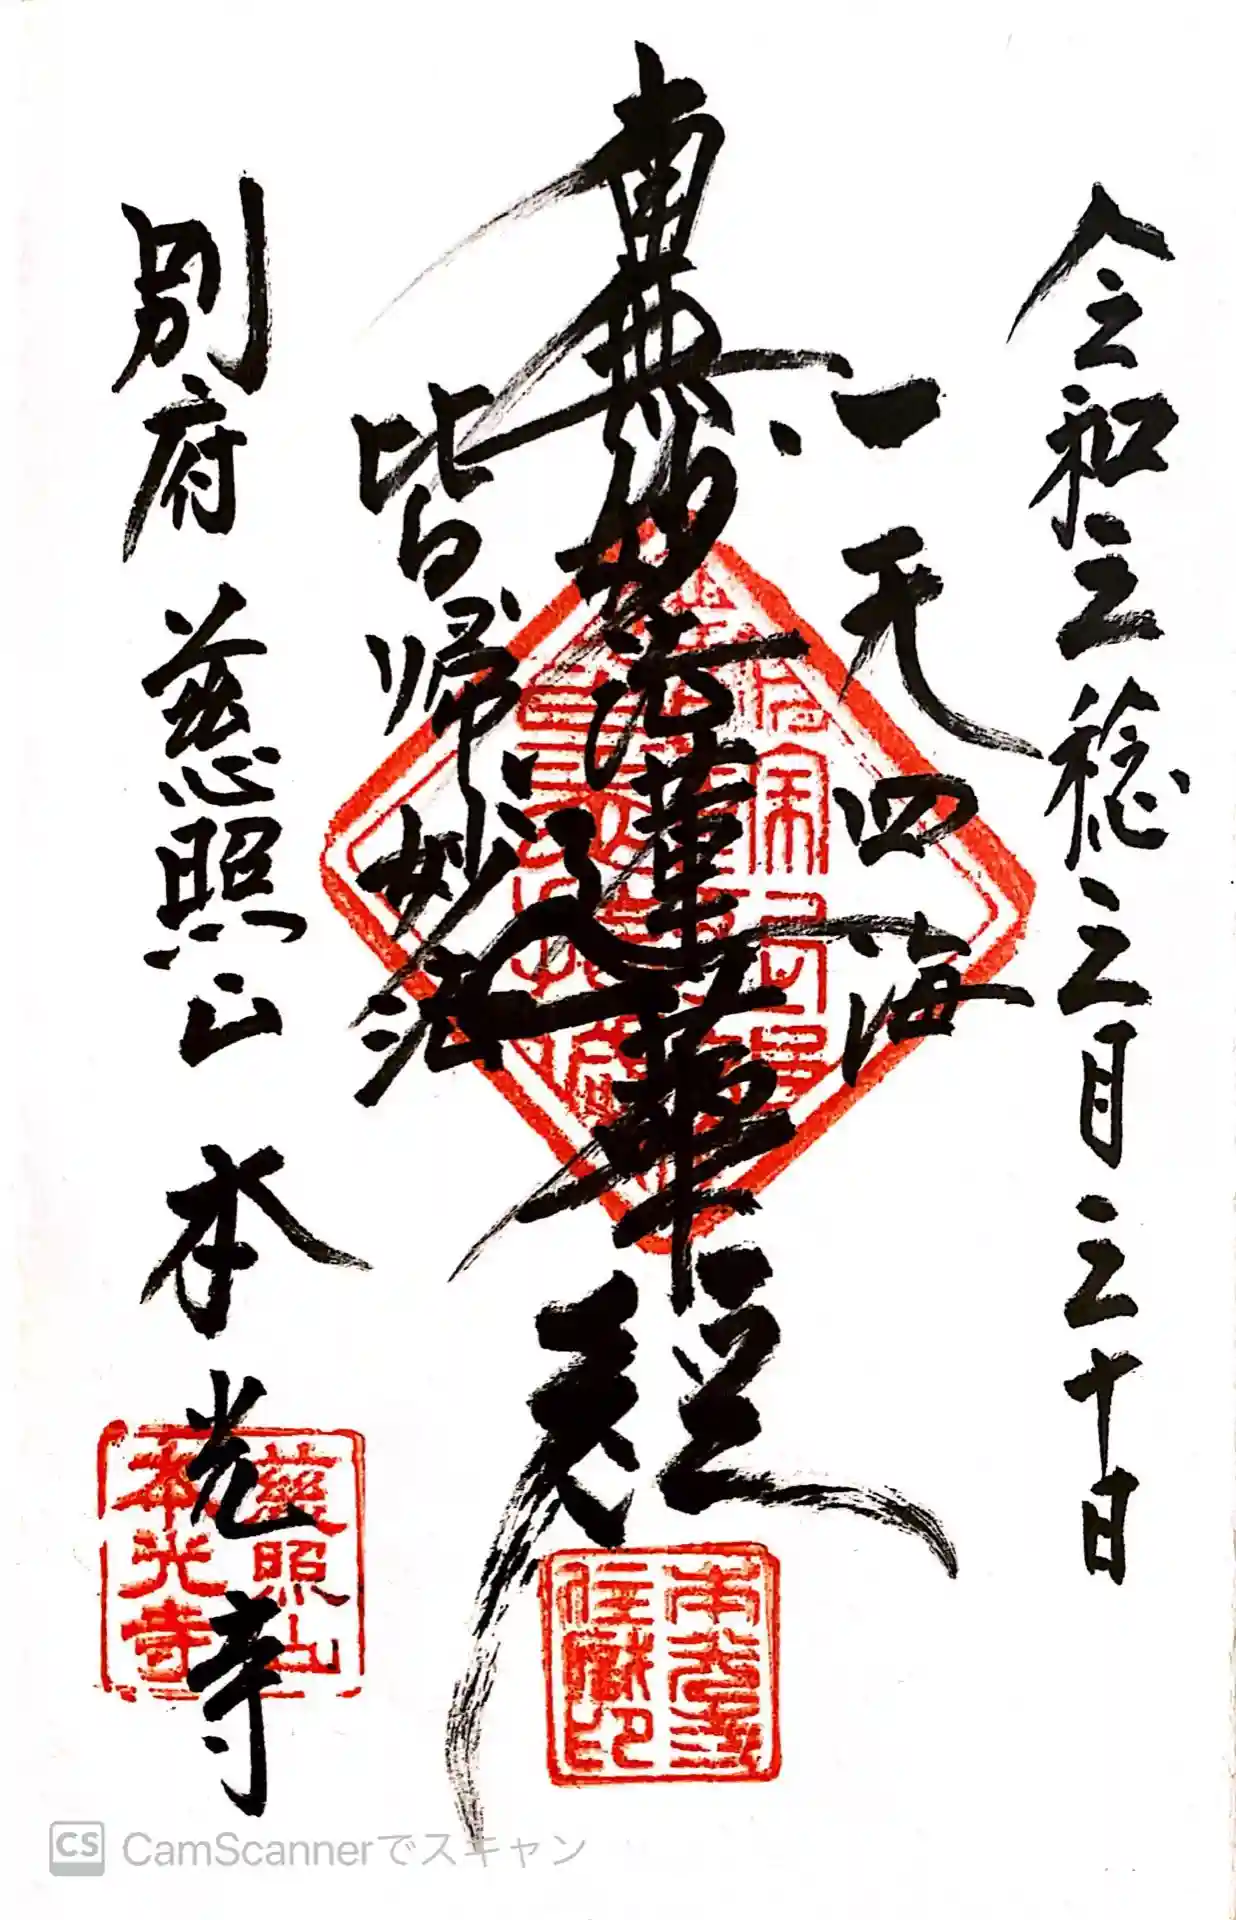 令和三稔三月三十日
一天四海
南無妙法蓮華経
皆帰妙法
別府 慈照山 本光寺
慈照山
本光寺
本光寺
住職印
CS CamScannerでスキャン